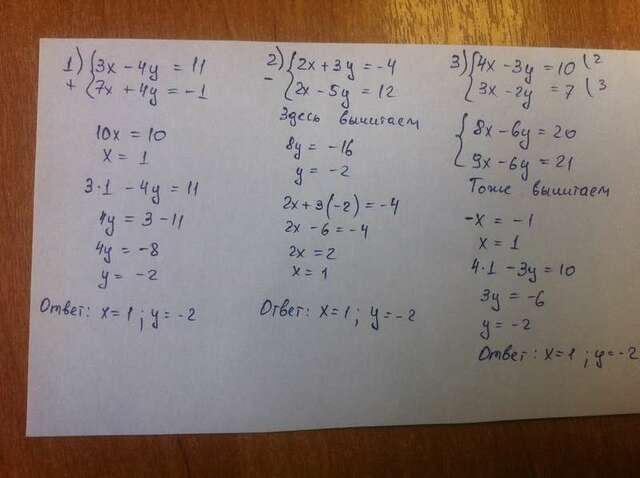 1) {3x - 4y = 11
+ {7x + 4y = -1
10x = 10
x = 1
3·1 - 4y = 11
4y = 3 - 11
4y = -8
y = -2
Ответ: x=1; y=-2
2) {2x + 3y = -4
- {2x - 5y = 12
Здесь вычитаем
8y = -16
y = -2
2x + 3(-2) = -4
2x - 6 = -4
2x = 2
x = 1
Ответ: x=1; y=-2
3) {4x - 3y = 10 (2
{3x - 2y = 7 (3
{8x - 6y = 20
{9x - 6y = 21
Тоже вычитаем
-x = -1
x = 1
4·1 - 3y = 10
3y = -6
y = -2
Ответ: x=1; y=-2